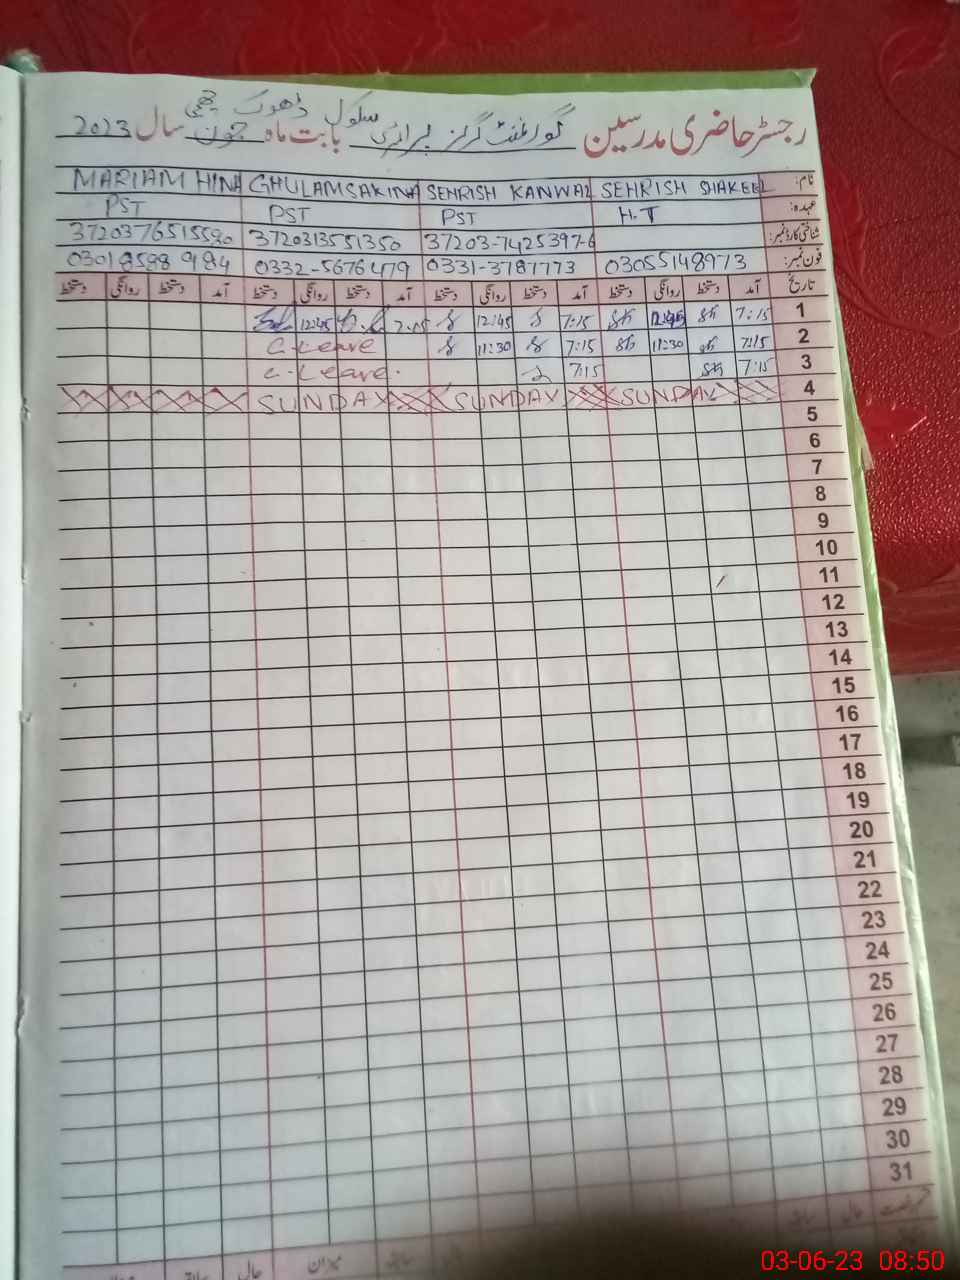 رجسٹر حاضری مدرسین گورنمنٹ گرلز پرائمری سکول ڈھوک چھمی بابت ماہ جون سال 2023
نام: SEHRISH SHAKEEL SEHRISH KANWAL GHULAM SAKINA MARIAM HINA
عہدہ: H.T PST PST PST
شناختی کارڈ نمبر: 37203-7425397-6 3720313551350
فون نمبر: 03055148973 0331-3787773 0332-5676479
تاریخ آمد دستخط روانگی دستخط آمد دستخط روانگی دستخط آمد دستخط روانگی دستخط آمد دستخط روانگی دستخط
1 7:15 Sh 12:45 Sh 7:15 12:45 7:15 12:45
2 7:15 Sh 11:30 Sh 7:15 11:30 C.Leave
3 7:15 Sh 7:15 C.Leave.
4 SUNDAY SUNDAY SUNDAY
5
6
7
8
9
10
11
12
13
14
15
16
17
18
19
20
21
22
23
24
25
26
27
28
29
30
31
حالیہ سابقہ میزان حالیہ سابقہ
03-06-23 08:50